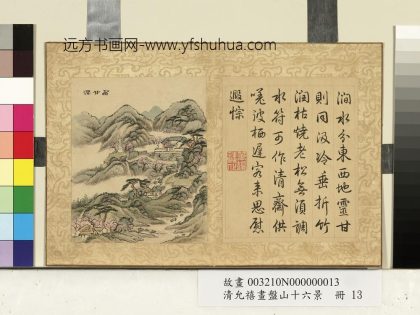 远方书画网-www.yfshuhua.com
澗水分東西地靈甘
則同汲冷垂折竹
潤枯燒老松無須調
水符可作清齋供
嘆波栖遲客來思慰
遐悰
故畫 003210N000000013
清允禧畫盤山十六景 冊 13